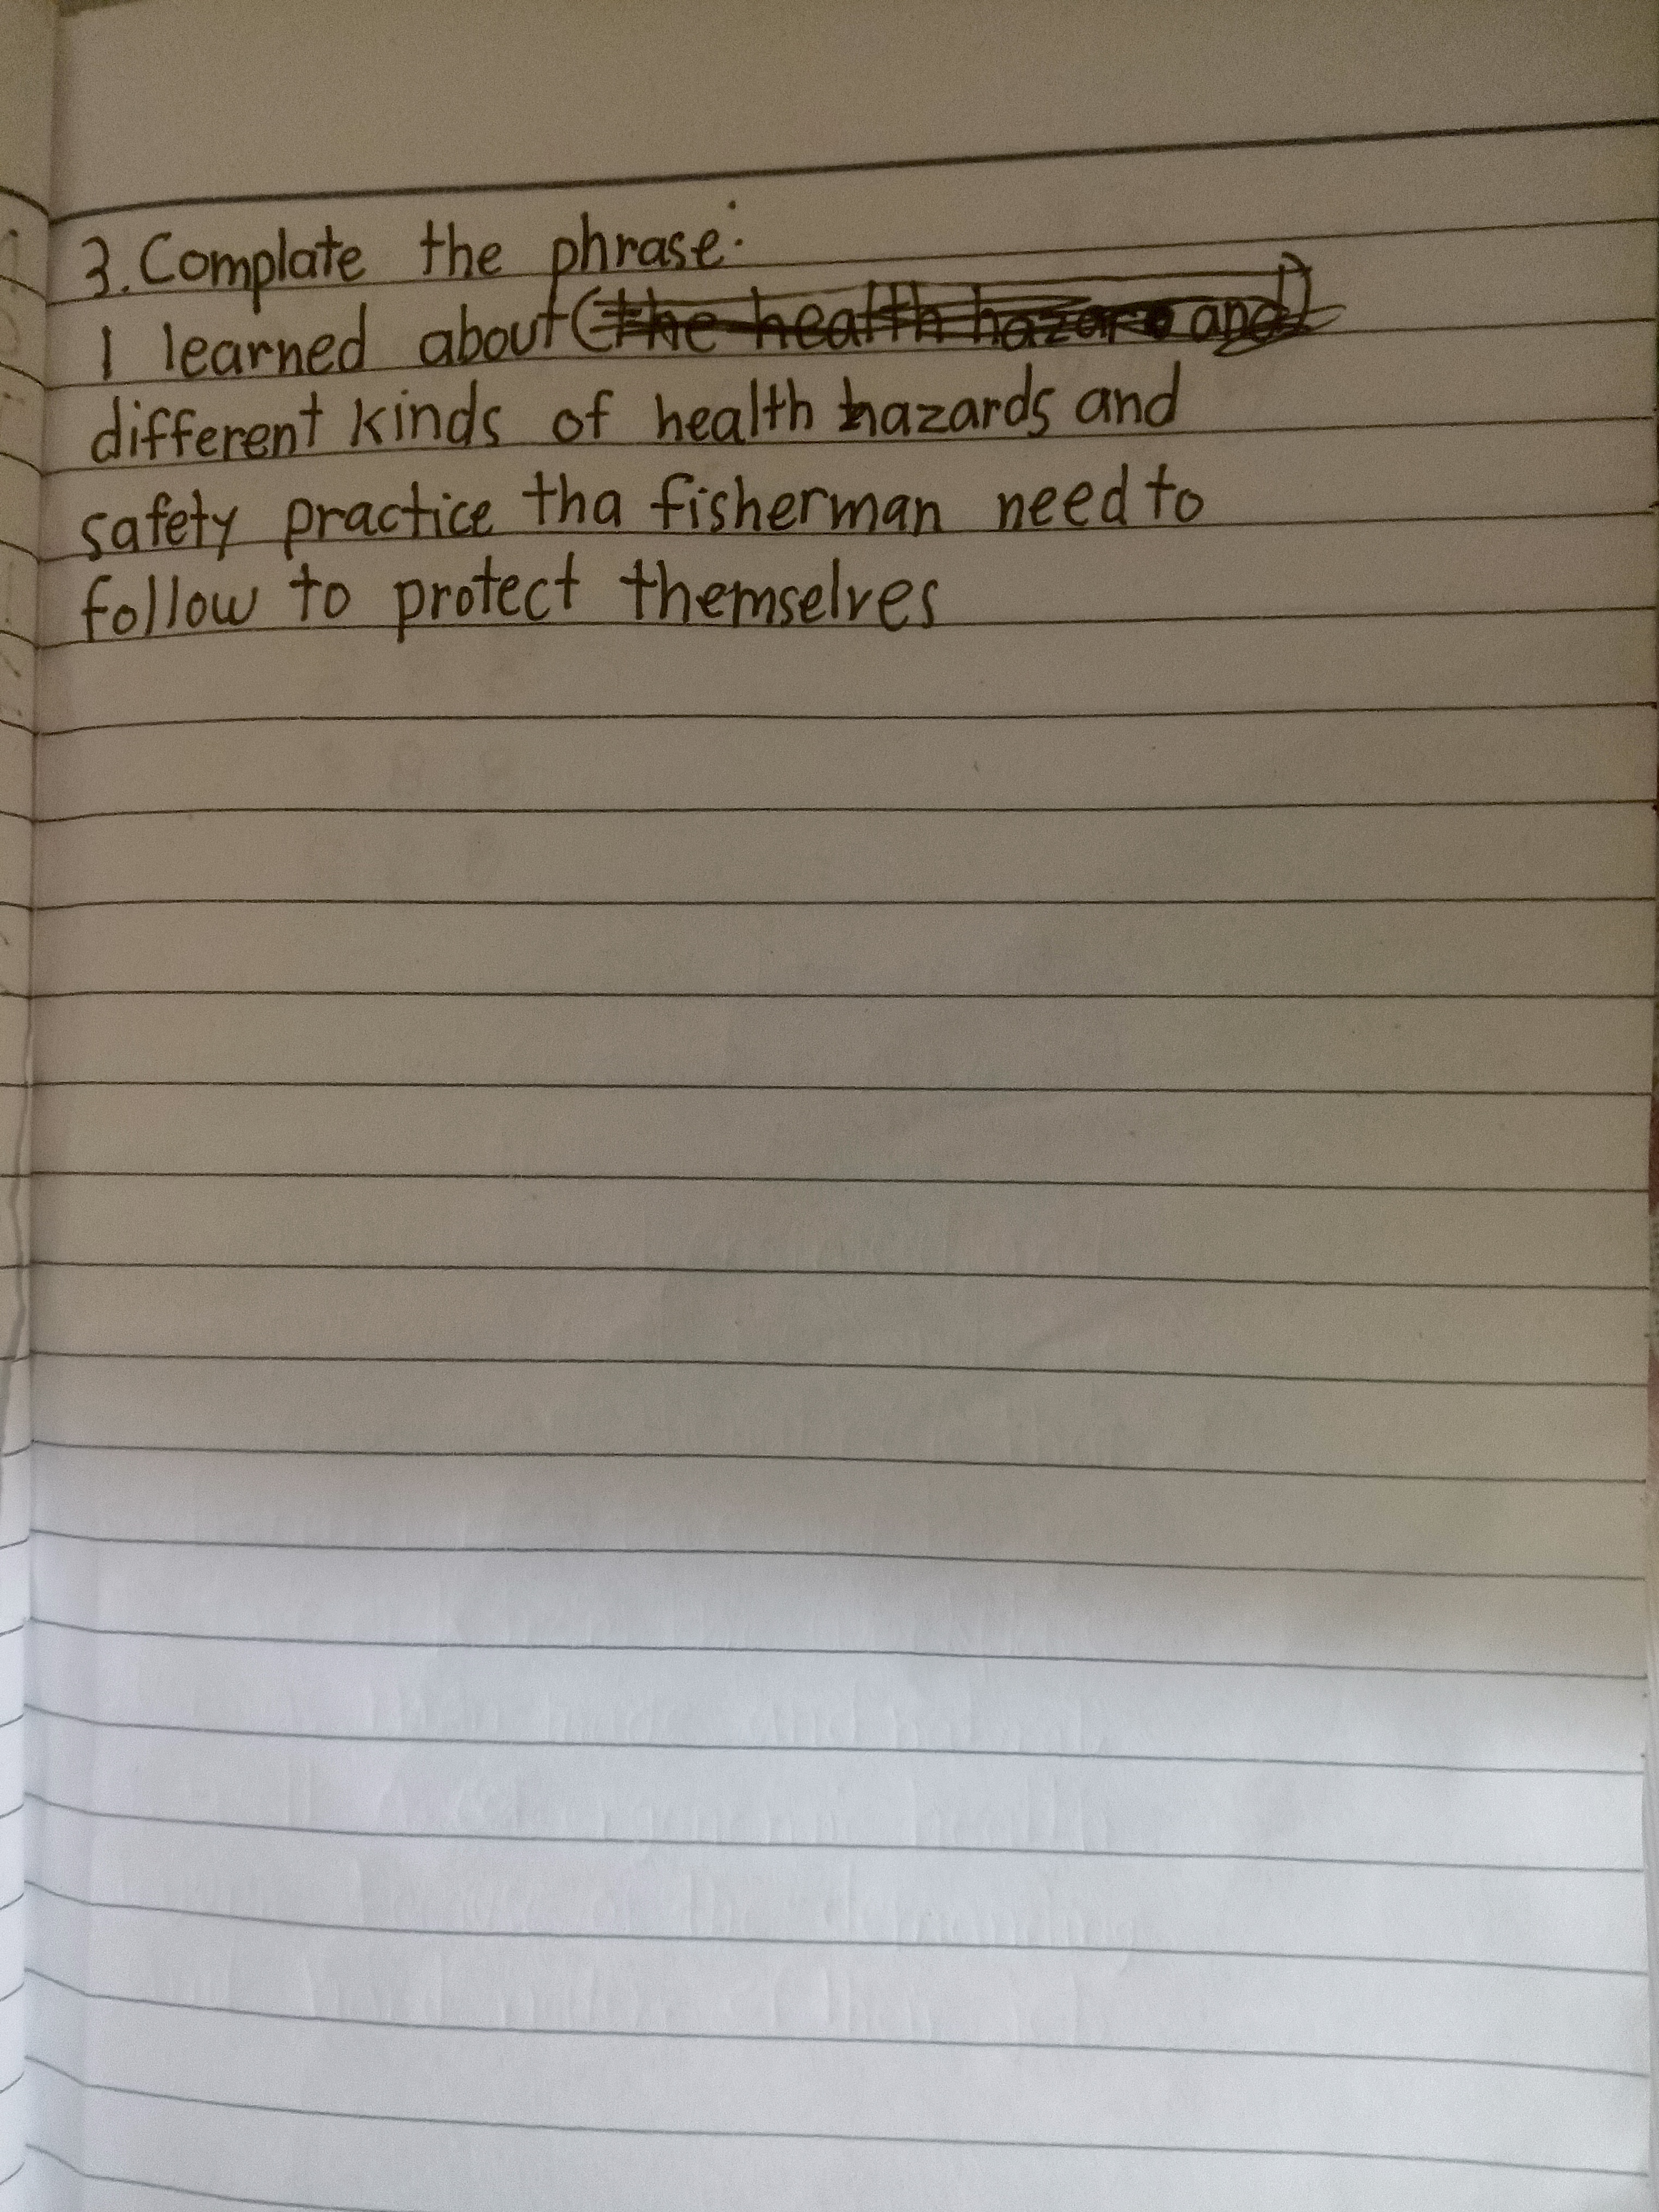 3. Complate the phrase:
I learned about (the health hazard and)
different kinds of health hazards and
safety practice tha fisherman need to
follow to protect themselves